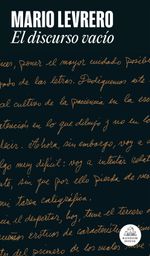 MARIO LEVRERO
El discurso vacío
nues, poner el mayor cuidado posible
de las letras.
al cultivo de la paciencia en la
atención en lo que dibujo y no en lo
Ahora, sin embargo, voy a
algo muy difícil: voy a intentar
sin que por ello pierda de
mi tarea caligráfica.
en el despertar, hoy, tuve el tercero
sueños eróticos de características
del primero de los cuales